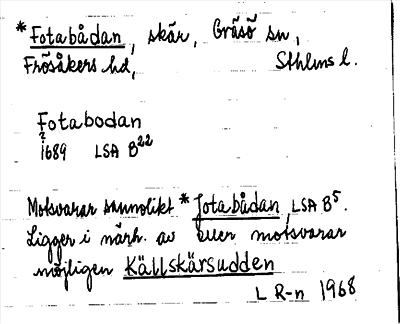 *Fotabådan, skär, Gräsö sn,
Frösåkers hd, Sthlms l.
Fotabodan
?
1689 LSA B22
Motsvarar sannolikt *Jotabådan, LSA B5.
Ligger i närh. av eller motsvarar
möjligen Källskärsudden
L R-n 1968